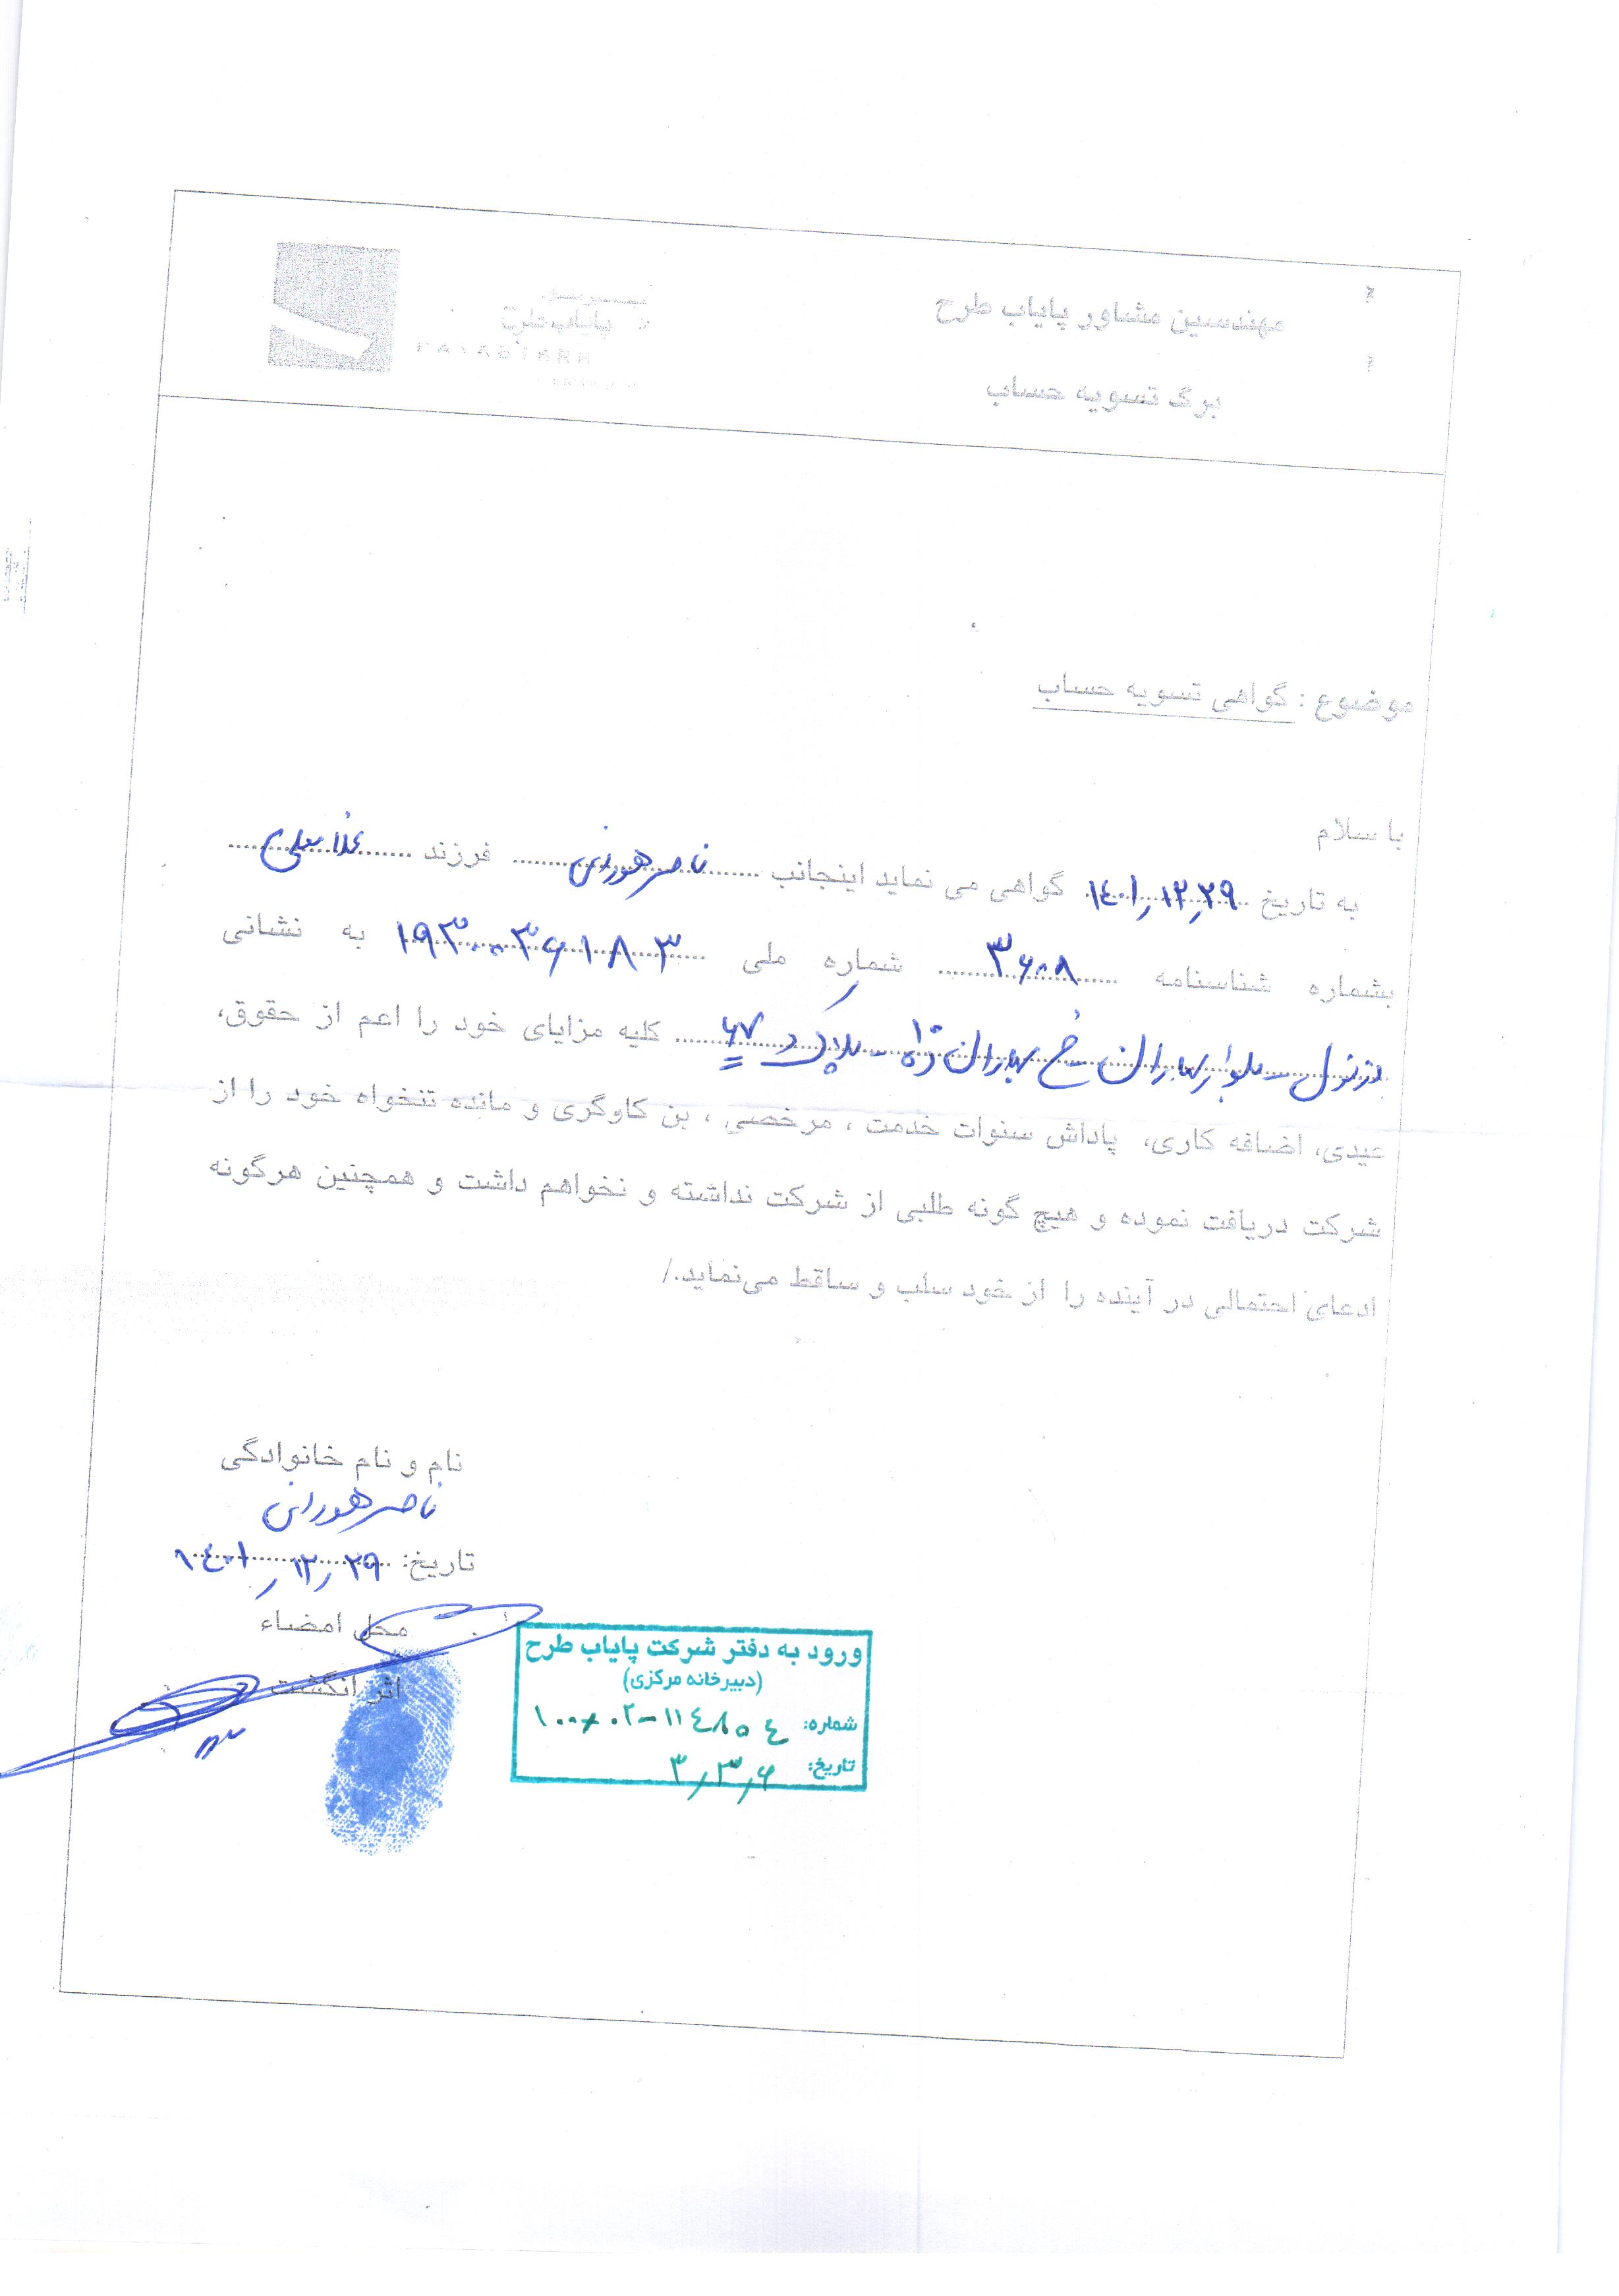 مهندسین مشاور پایاب طرح
پایاب طرح
برگ تسویه حساب
موضوع : گواهی تسویه حساب
با سلام
به تاریخ ۱۴۰۱/۱۲/۲۹ گواهی می نماید اینجانب ناصر هورانی فرزند غلامعلی
بشماره شناسنامه ۳۶۰۸ شماره ملی ۱۹۳۰۰۳۶۱۸۳ به نشانی
دزفول - بلوار بهاران - خ بهاران ۱۰ - پلاک ۶۷ کلیه مزایای خود را اعم از حقوق،
عیدی، اضافه کاری، پاداش سنوات خدمت ، مرخصی ، بن کاوگری و مانده تنخواه خود را از
شرکت دریافت نموده و هیچ گونه طلبی از شرکت نداشته و نخواهم داشت و همچنین هرگونه
ادعای احتمالی در آینده را از خود سلب و ساقط می‌نماید./
نام و نام خانوادگی
ناصر هورانی
تاریخ: ۱۴۰۱/۱۲/۲۹
محل امضاء
اثر انگشت
ورود به دفتر شرکت پایاب طرح
(دبیرخانه مرکزی)
شماره:
تاریخ: ۳/۳/۶